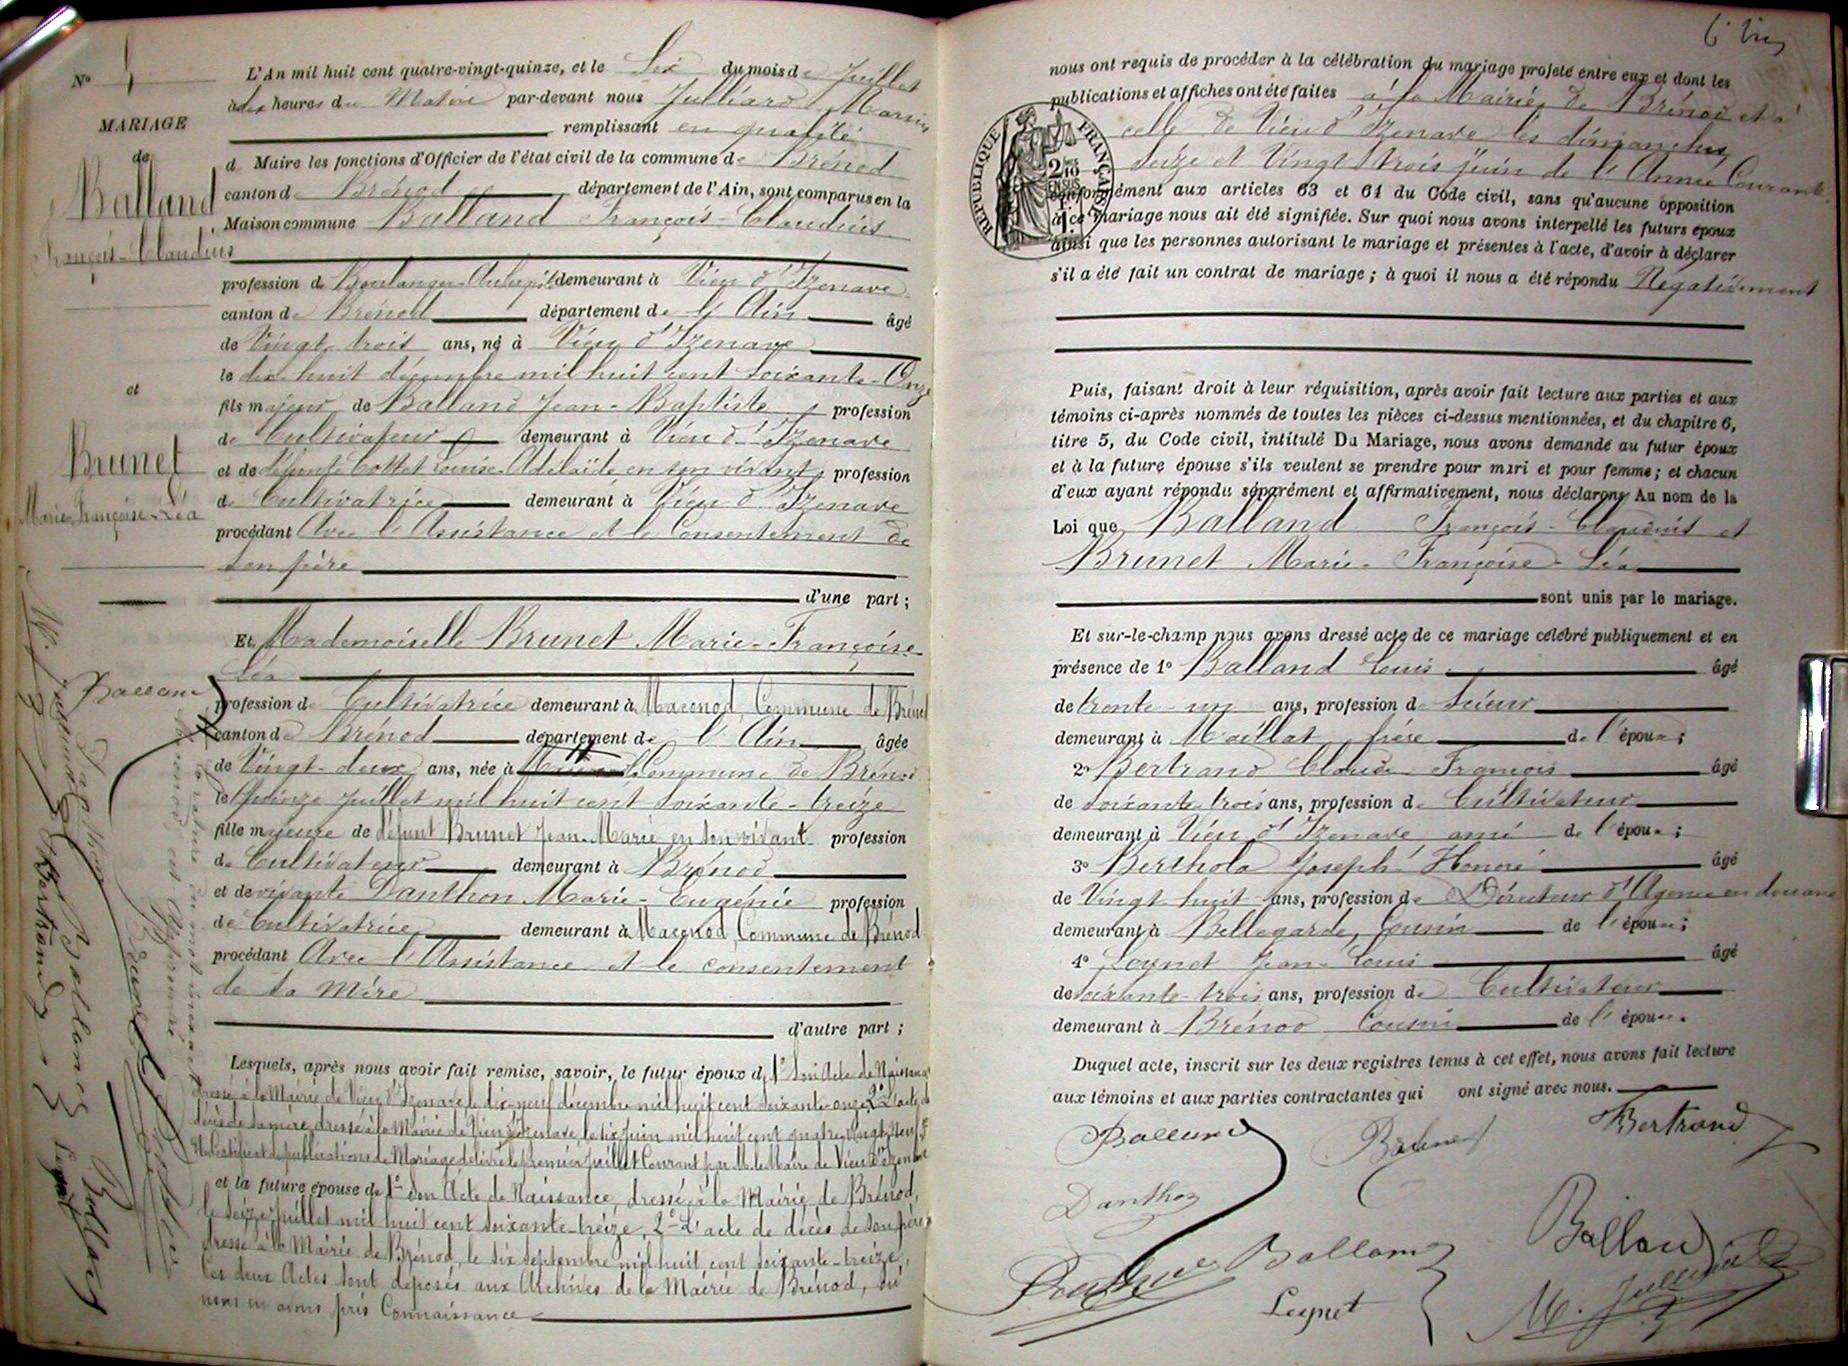 N° 4
MARIAGE
de
Balland
François-Claudius
et
Brunet
Marie-Françoise-Léa
L'An mil huit cent quatre-vingt-quinze, et le Six du mois de Juillet
à dix heures du Matin par-devant nous Julliard Marius
remplissant en qualité
de Maire les fonctions d'Officier de l'état civil de la commune de Brénod
canton de Brénod département de l'Ain, sont comparus en la
Maison commune Balland François-Claudius
profession de Boulanger demeurant à Vieu d'Izenave
canton de Brénod département de l'Ain âgé
de Vingt-trois ans, né à Vieu d'Izenave
le dix-huit décembre mil huit cent soixante-Onze
fils majeur de Balland Jean-Baptiste profession
de Cultivateur demeurant à Vieu d'Izenave
et de défunte Cottet Louise-Adelaïde en son vivant, profession
de Cultivatrice demeurant à Vieu d'Izenave
procédant Avec l'Assistance et le Consentement de
son père
d'une part ;
Et Mademoiselle Brunet Marie-Françoise
Léa
profession de Cultivatrice demeurant à Maconod, Commune de Brénod
canton de Brénod département de l'Ain âgée
de Vingt-deux ans, née à Commune de Brénod
le quinze juillet mil huit cent soixante-treize
fille majeure de défunt Brunet Jean-Marie en son vivant profession
de Cultivateur demeurant à Brénod
et de vivante Danthon Marie-Eugénie profession
de Cultivatrice demeurant à Maconod, Commune de Brénod
procédant Avec l'Assistance et le consentement
de sa Mère
d'autre part ;
Lesquels, après nous avoir fait remise, savoir, le futur époux de 1° Son Acte de Naissance
dressé à la Mairie de Vieu d'Izenave le dix-neuf décembre mil huit cent soixante-onze 2° L'acte de
décès de sa mère, dressé à la Mairie de Vieu d'Izenave le six Juin mil huit cent quatre vingt-neuf 3°
Certificat de publications de Mariage délivré le premier Juillet Courant par M. le Maire de Vieu d'Izenave
et la future épouse de 1° Son Acte de Naissance, dressé à la Mairie de Brénod,
le seize juillet mil huit cent soixante-treize, 2° L'acte de décès de son père
dressé à la Mairie de Brénod, le six septembre mil huit cent soixante-treize,
Ces deux Actes sont déposés aux Archives de la Mairie de Brénod, où
nous en avons pris Connaissance
nous ont requis de procéder à la célébration du mariage projeté entre eux et dont les
publications et affiches ont été faites à la Mairie de Brénod et à
celle de Vieu d'Izenave les dimanches
Seize et Vingt trois juin de l'Année Courante
conformément aux articles 63 et 64 du Code civil, sans qu'aucune opposition
à ce mariage nous ait été signifiée. Sur quoi nous avons interpellé les futurs époux
ainsi que les personnes autorisant le mariage et présentes à l'acte, d'avoir à déclarer
s'il a été fait un contrat de mariage ; à quoi il nous a été répondu Négativement
RÉPUBLIQUE FRANÇAISE
2/10 EN SUS
Puis, faisant droit à leur réquisition, après avoir fait lecture aux parties et aux
témoins ci-après nommés de toutes les pièces ci-dessus mentionnées, et du chapitre 6,
titre 5, du Code civil, intitulé Du Mariage, nous avons demandé au futur époux
et à la future épouse s'ils veulent se prendre pour mari et pour femme ; et chacun
d'eux ayant répondu séparément et affirmativement, nous déclarons Au nom de la
Loi que Balland François-Claudius et
Brunet Marie-Françoise-Léa
sont unis par le mariage.
Et sur-le-champ nous avons dressé acte de ce mariage célébré publiquement et en
présence de 1° Balland Louis âgé
de trente-un ans, profession de Scieur
demeurant à Maillat frère de l'époux ;
2° Bertrand Claude François âgé
de soixante trois ans, profession de Cultivateur
demeurant à Vieu d'Izenave ami de l'époux ;
3° Berthola Joseph Honoré âgé
de Vingt huit ans, profession de Directeur d'Agence en douane
demeurant à Bellegarde, Cousin de l'épouse ;
4° Leynet Jean-Louis âgé
de soixante-trois ans, profession de Cultivateur
demeurant à Brénod Cousin de l'épouse.
Duquel acte, inscrit sur les deux registres tenus à cet effet, nous avons fait lecture
aux témoins et aux parties contractantes qui ont signé avec nous.
Balland Brunet Bertrand
Danthon
Balland Balland
Leynet M. Julliard